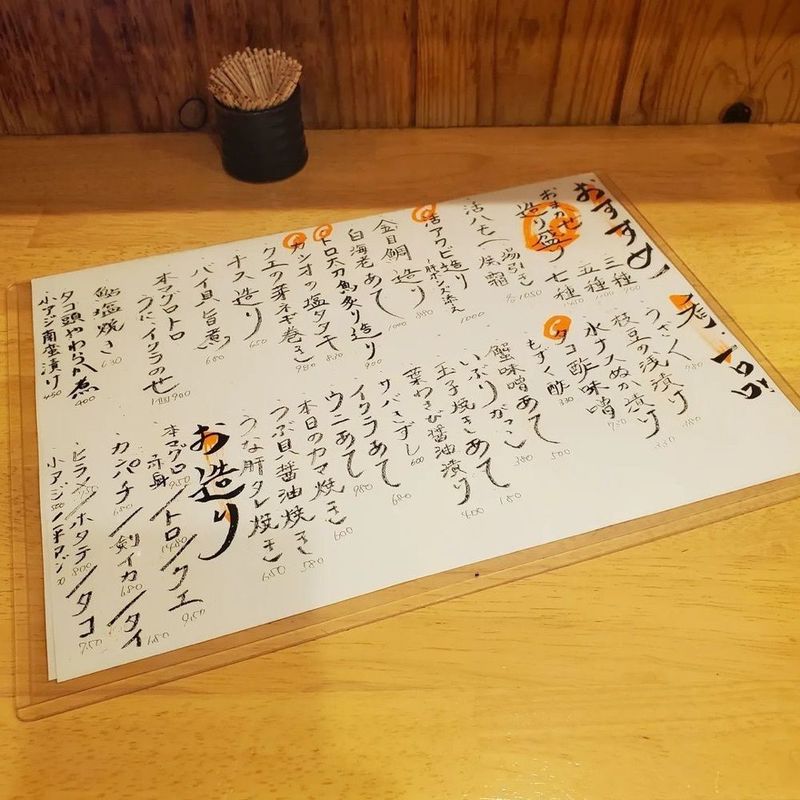 おすすめ
おまかせ
造り盛り
三種 900
五種
七種
活ハモ
湯引き
焼霜
各1050
活アワビ造り
肝ポン酢添え
1000
金目鯛造り 880
白海老あて 1000
トロ太刀魚炙り造り 900
カツオの塩タタキ
クエの芽ネギ巻き 980
ナス造り 650
バイ貝旨煮 680
本マグロトロ
うに、イクラのせ
1皿900
鮎塩焼き 630
タコ頭やわらか煮 400
小アジ南蛮漬け 450
一品
うざく
枝豆の浅漬け
水ナスぬか漬け
タコ酢味噌
もずく酢
蟹味噌あて 500
いぶりがっこ 380
玉子焼きあて
葉わさび醤油漬け 400
サバきずし 600
イクラあて
ウニあて
本日のカマ焼き 600
つぶ貝醤油焼き 580
うな肝タレ焼き 650
お造り
本マグロ赤身/トロ/クエ
カンパチ/剣イカ/タイ
ヒラメ/ホタテ/タコ
小アジ